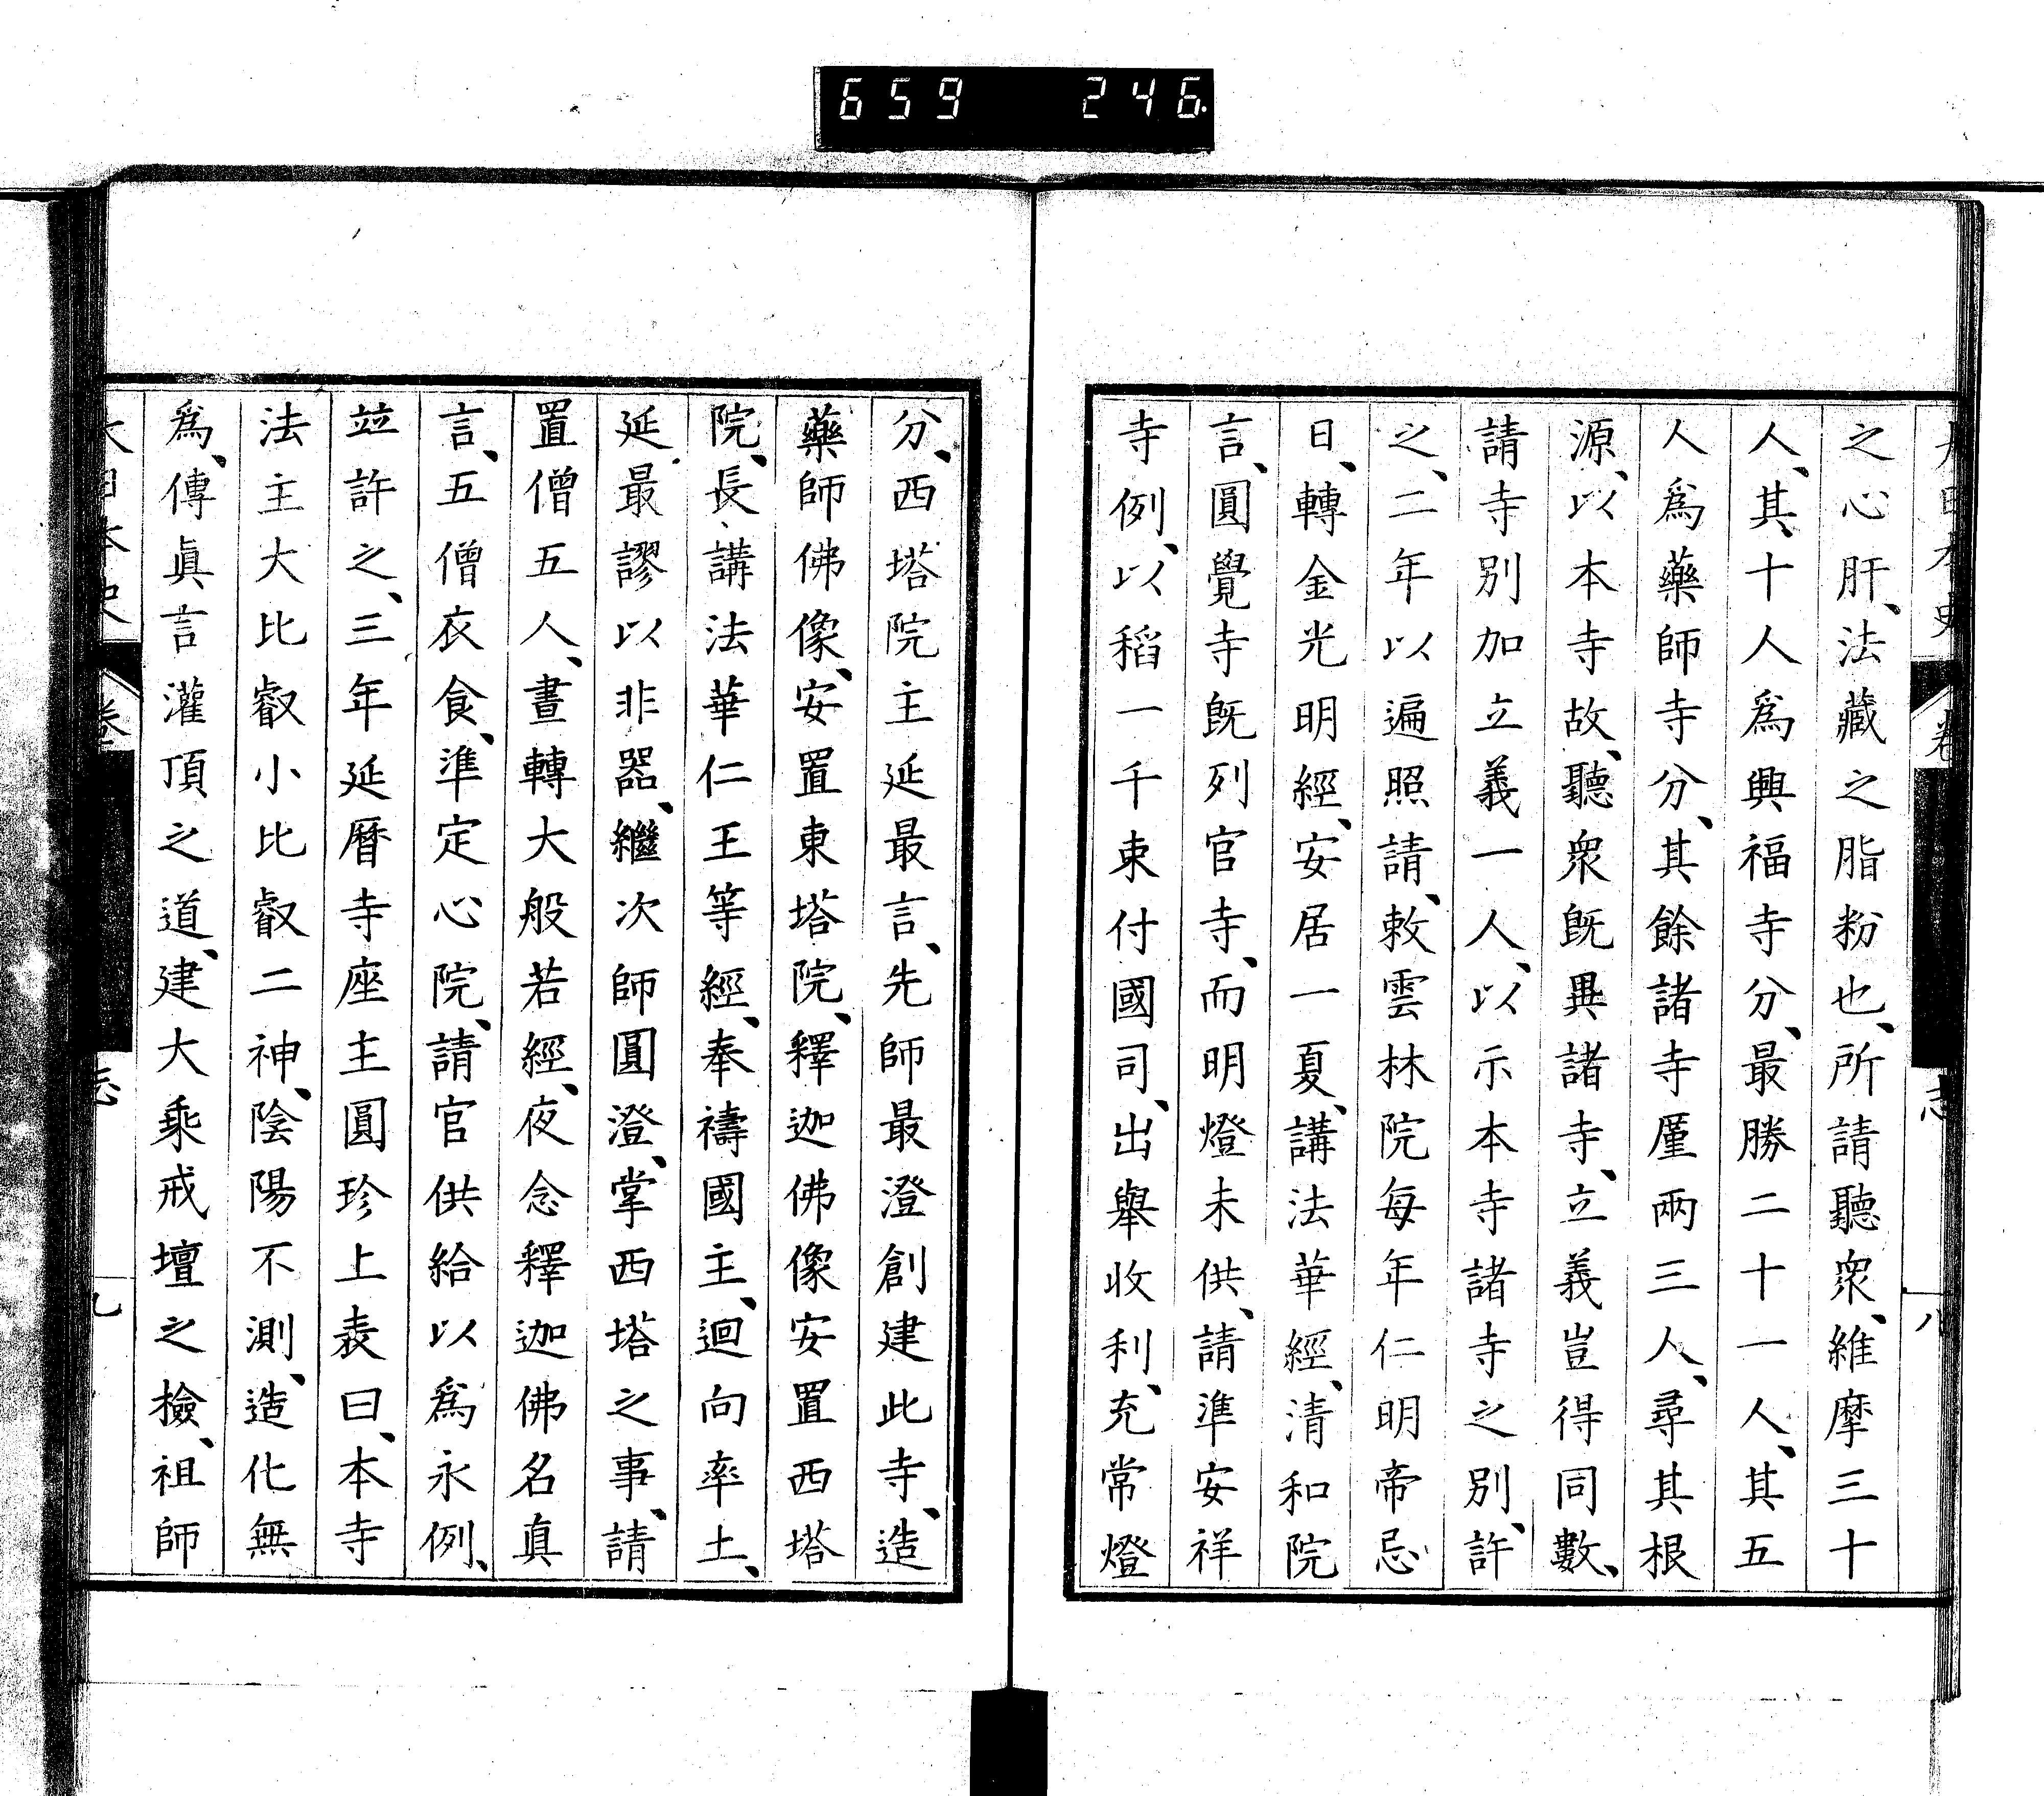 659 246
大日本史 卷 志 八
之心肝、法藏之脂粉也、所請聽衆、維摩三十
人、其十人爲興福寺分、最勝二十一人、其五
人爲藥師寺分、其餘諸寺廑兩三人、尋其根
源、以本寺故、聽衆既異諸寺、立義豈得同數、
請寺別加立義一人、以示本寺諸寺之別、許
之、二年以遍照請、敕雲林院每年仁明帝忌
日、轉金光明經、安居一夏、講法華經、清和院
言、圓覺寺既列官寺、而明燈未供、請準安祥
寺例、以稻一千束付國司、出舉收利、充常燈
分、西塔院主延最言、先師最澄創建此寺、造
藥師佛像、安置東塔院、釋迦佛像安置西塔
院、長講法華仁王等經、奉禱國主、迴向率土、
延最謬以非器、繼次師圓澄、掌西塔之事、請
置僧五人、晝轉大般若經、夜念釋迦佛名真
言、五僧衣食、準定心院、請官供給以爲永例、
竝許之、三年延曆寺座主圓珍上表曰、本寺
法主大比叡小比叡二神、陰陽不測、造化無
爲、傳眞言灌頂之道、建大乘戒壇之檢、祖師
大日本史 卷 志 九